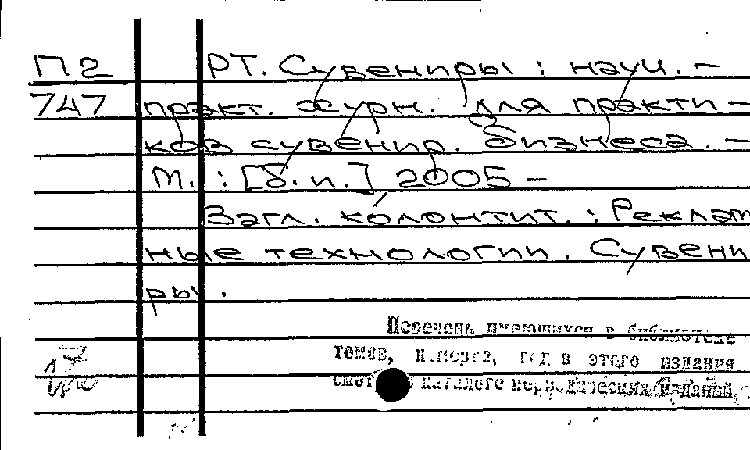 П2 РТ. Сувениры : науч. –
747 практ. журн. для практи –
ков сувенир. бизнеса. –
М. : [б. и.] 2005 –
Загл. колонтит. : Реклам
ные технологии. Сувени
ры.
Перечень имеющихся в библиотеке
томов, номера, год в этого издания
смот каталоге периодических изданий